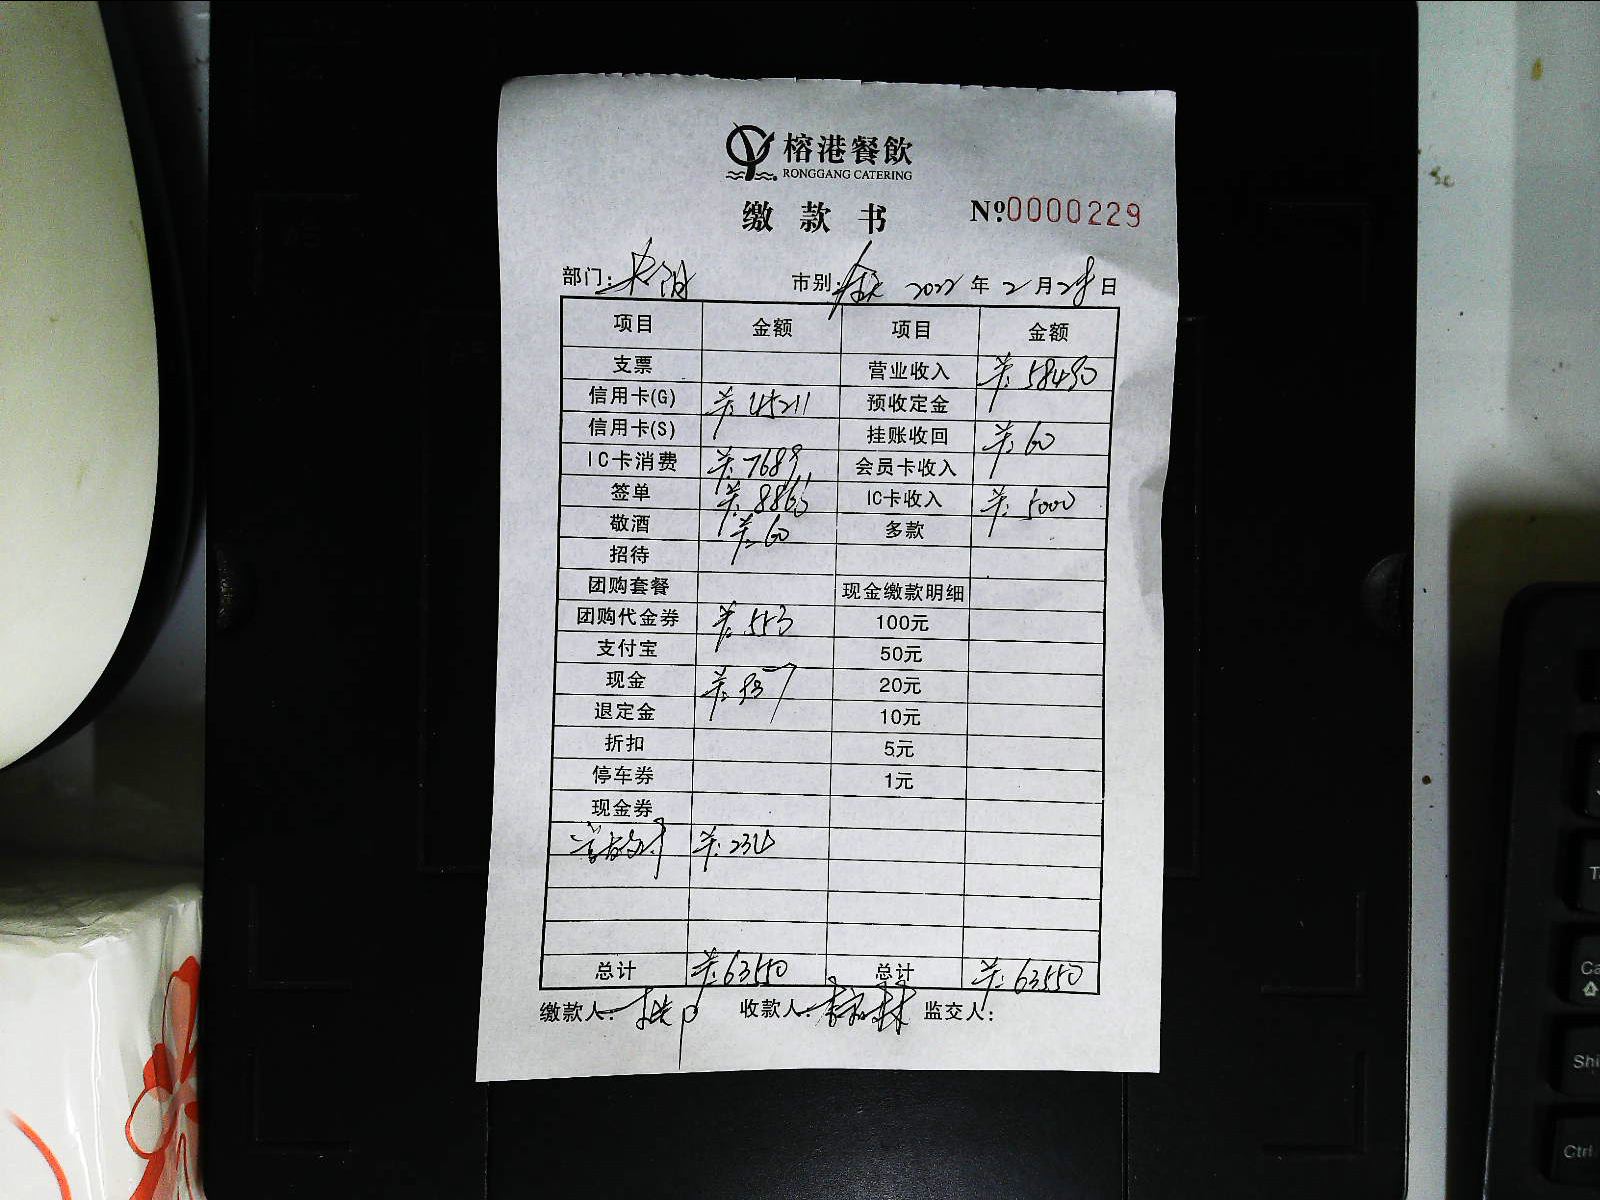 榕港餐飲
RONGGANG CATERING
缴款书 №0000229
部门: 市别: 全天 2022年2月28日
项目 金额 项目 金额
支票 营业收入 羊:58490
信用卡(G) 羊:45211 预收定金
信用卡(S) 挂账收回 羊:60
IC卡消费 羊:7689 会员卡收入
签单 羊: IC卡收入 羊:5000
敬酒 羊:60 多款
招待
团购套餐 现金缴款明细
团购代金券 羊:553 100元
支付宝 50元
现金 羊: 20元
退定金 10元
折扣 5元
停车券 1元
现金券
羊:
总计 羊:63550 总计 羊:63550
缴款人: 收款人: 监交人:
Ctrl